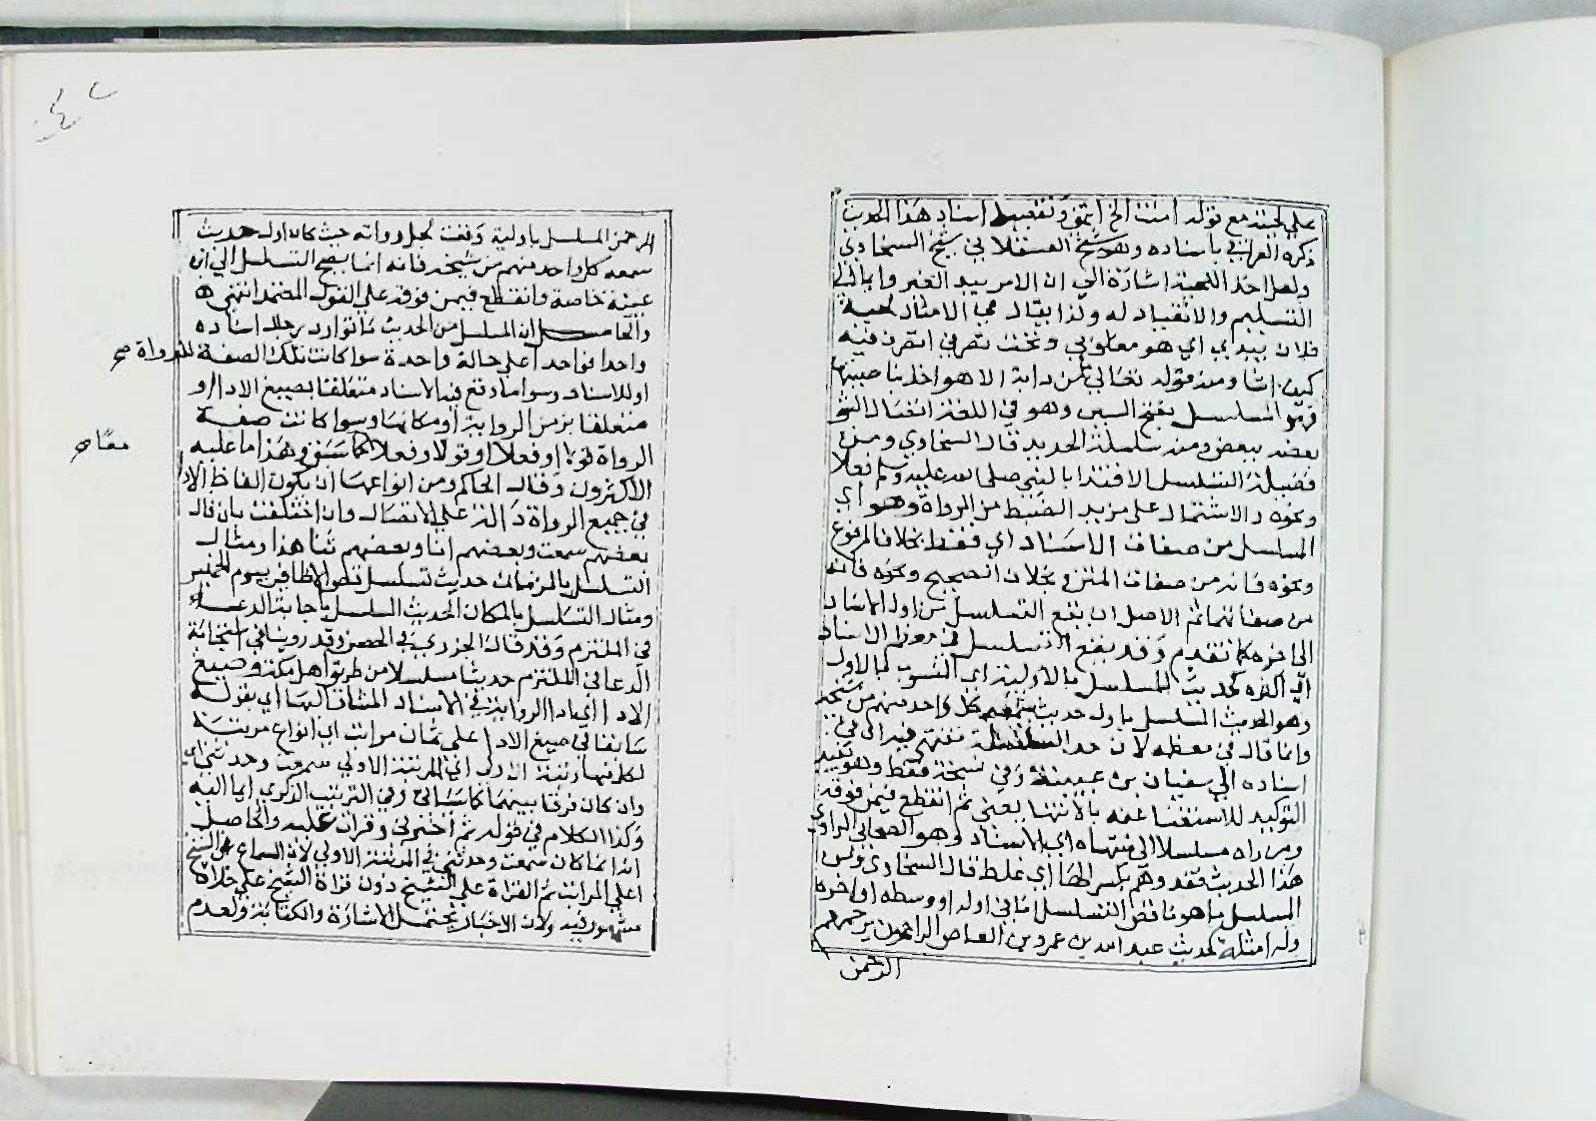 علي لحيته مع قوله امنت الخ اتفق وتفصيل اسناد هذا الحديث
ذكره العراقي باسناده وهو شيخ العسقلاني شيخ السخاوي
ولعل اخذ اللحية اشارة الي ان الامر بيد الغير وايما الي
التسليم والانقياد له ولذا يقال في الامثال لحية
فلان بيدي اي هو مغلوبي وتحت تصرفي اتصرف فيه
كيف اشا ومنه قوله تعالي ما من دابة الا هو اخذ بناصيتها
المسلسل بفتح السين وهو في اللغة اتصال الشي
بعضه ببعض ومنه سلسلة الحديد قال السخاوي ومن
فضيلة التسلسل الاقتدا بالنبي صلي الله عليه وسلم فعلا
ونحوه والاشتمال علي مزيد الضبط من الرواة وهو اي
المسلسل من صفات الاسناد اي فقط بخلاف المرفوع
ونحوه فانه من صفات المتن و بخلاف الصحيح ونحوه فانه
من صفاتهما ثم الاصل ان يقع التسلسل من اول الاسناد
الي اخره كما تقدم وقد يقع التسلسل في معظم الاسناد
اي اكثره كحديث المسلسل بالاولية اي المنسوب الي الاول
وهو الحديث المسلسل باول حديث سمعه كل واحد منهم من شيخه
وانما قال في معظمه لان حد السلسلة تنتهي فيه الي
اسناده الي سفيان بن عيينة وفي نسخة فقط وهو تفيد
التوكيد للاستغنا عنه بالانتها يعني ثم انقطع فيمن فوقه
ومن رواه مسلسلا الي منتهاه اي الاسناد وهو الصحابي الراوي
هذا الحديث فقد وهم بكسر الها اي غلط قال السخاوي وليس
المسلسل ما هو ناقص التسلسل اما في اوله او وسطه او اخره
وله امثلة كحديث عبد الله بن عمرو بن العاص الراحمون يرحمهم
الرحمن
الرحمن المسلسل باولية وقعت لجل رواته حيث كان اول حديث
سمعه كل واحد منهم من شيخه فانه انما يصح التسلسل الي ابن
عيينة خاصة وانقطع فيمن فوقه علي القول المعتمد انتهي
والحاصل ان المسلسل من الحديث ما توارد رجال اسناده
واحدا فواحدا علي حالة واحدة سوا كانت تلك الصفة للرواة صح
او للاسناد وسوا ما وقع فيه الاسناد متعلقا بصيغ الادا او
متعلقا بزمن الرواية او مكانها وسوا كانت صفة
الرواة قولا او فعلا او قولا وفعلا كما سبق وهذا ما عليه
معا صح
الاكثرون وقال الحاكم ومن انواعها ان يكون الفاظ الادا
في جميع الرواة دالة علي الاتصال وان اختلفت بان قال
بعضهم سمعت وبعضهم انا وبعضهم ثنا هذا ومثال
التسلسل بالزمان حديث تسلسل قص الاظافر بيوم الخميس
ومثال التسلسل بالمكان الحديث المسلسل باجابة الدعا
في الملتزم وقد قال الجزري في الحصن وقد روينا في استجابة
الدعا في الملتزم حديثا مسلسلا من طريق اهل مكة وصيغ
الادا اي ادا الرواية في الاسناد المشار اليها اي بقوله
سابقا في صيغ الادا علي ثمان مراتب اي انواع مرتبة
لكل منها رتبة الاولي اي المرتبة الاولي سمعت وحدثني اي
وان كان فرقا بينهما كما سياتي وفي الترتيب الذكري ايما اليه
وكذا الكلام في قوله ثم اخبرني وقرات عليه والحاصل
انه انما كان سمعت وحدثني في المرتبة الاولي لان السماع من الشيخ
اعلي المراتب ثم القراة علي الشيخ دون قراة الشيخ علي خلاف
مشهور فيه ولان الاخبار يحتمل الاشارة والكتابة ولعدم